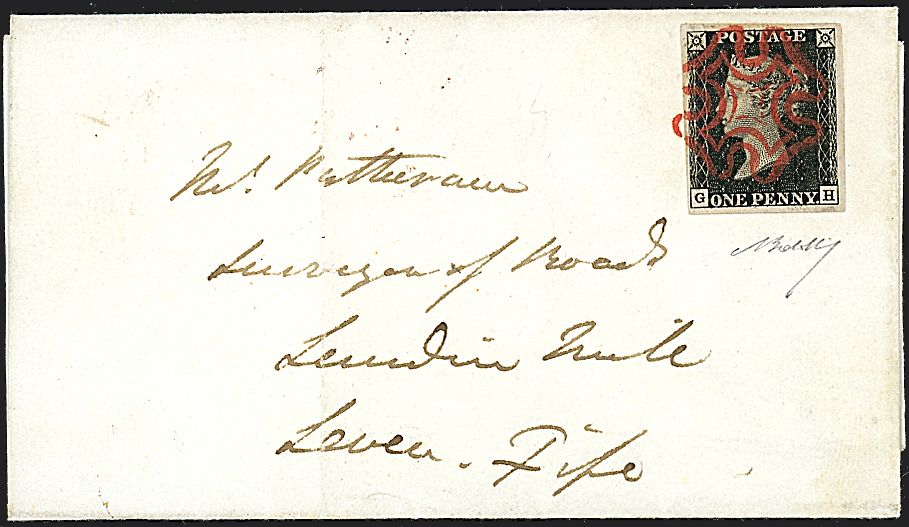 POSTAGE
G ONE PENNY. H
Mr.
Surveyor of Roads
Lundin Mill
Leven. Fife